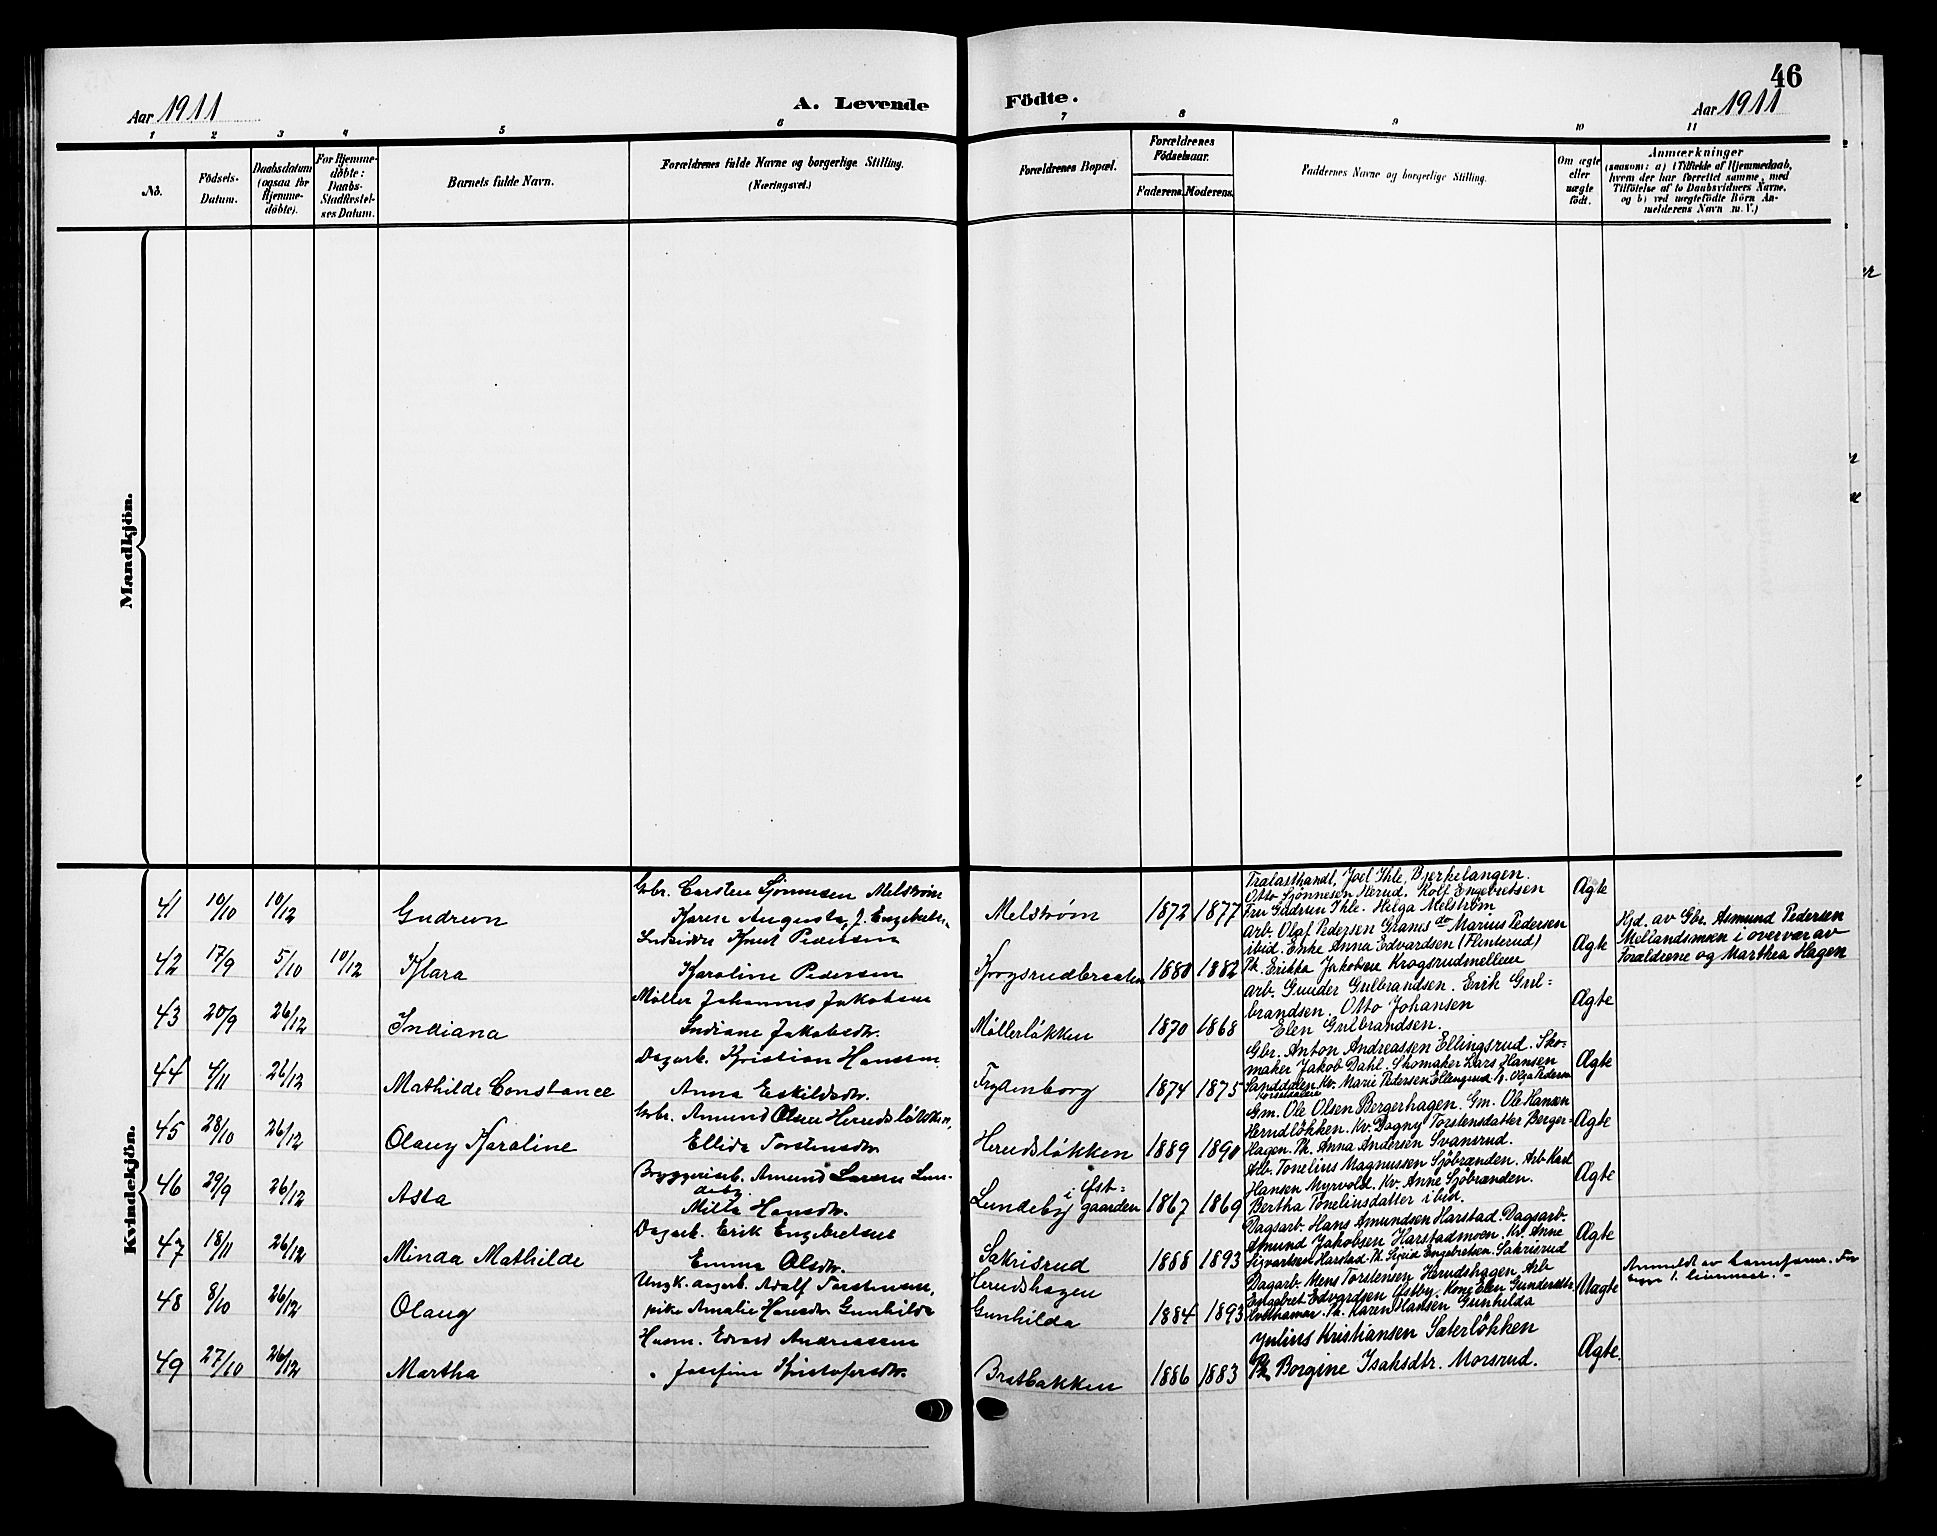 46
Aar 1911
A. Levende Födte.
Aar 1911
1 2 3 4 5 6 7 8 9 10 11
No.
Födsels-Datum.
Daabsdatum (ogsaa for Hjemme-döbte).
For Hjemme-döbte: Daabs-Stadfæstel-ses Datum.
Barnets fulde Navn.
Forældrenes fulde Navne og borgerlige Stilling. (Næringsvei.)
Forældrenes Bopæl.
Forældrenes Födselsaar.
Faderens. Moderens.
Faddernes Navne og borgerlige Stilling.
Om ægte eller uægte födt.
Anmærkninger
(saasom: a) i Tilfælde af Hjemmedaab, hvem der har forrettet samme, med Tilföielse af to Daabsvidners Navne, og b) ved uægtefödte Börn An-melderens Navn m. V.)
Mandkjön.
Kvindekjön.
41 10/10 10/12 Gudrun
Gbr. Carsten Sjønnesen Melstrøm
Karen Augusta, J. Engebrets.
Melstrøm 1872 1877
Tralasthandl, Joel Ihle, Bjerkelangen.
Otto Sjønnesen Nerud. Rolf Engebretsen
Fru Gudrun Ihle. Helga Melstrøm
Ægte
42 17/9 5/10 10/12 Klara
Indsidder Knut Pedersen
Karoline Pedersen
Krogsrudbraaten 1880 1882
Arb. Olaf Pedersen Granis do Marius Pedersen
ibid. Enke Anna Edvardsen (Flinterud)
Pk. Erikka Jakobsen Krogsrudmellem
Ægte
Hjd. av Gbr. Asmund Pedersen
Mellandsmoen i overvær av
Forældrene og Marthea Hagen
43 20/9 26/12 Indiana
Møller Johannes Jakobsen
Indiane Jakobsdtr.
Møllerløkken 1870 1868
Arb. Gunder Gulbrandsen. Erik Gul=
brandsen. Otto Johansen
Elen Gulbrandsen.
Ægte
44 4/11 26/12 Mathilde Constance
Dagarb. Kristian Hansen
Anna Eskildsdtr.
Frydenborg 1874 1875
Gbr. Anton Andreassen Ellingsrud. Sko-
maker Jakob Dahl. Skomaker Lars Hansen
Sanddalen Kv. Marie Pedersen Ellingsrud P. Olga Pedersen
Ægte
45 28/10 26/12 Olaug Karoline
Gbr. Amund Olsen Herudsløkken,
Ellida Torstensdtr.
Herudsløkken 1889 1890
Gm. Ole Olsen Bergerhagen. Gm. Ole Hansen
Herudløkken. Kv. Dagny Torstensdatter Berger-
hagen. Pk. Anna Andersen Svansrud.
Ægte
46 29/9 26/12 Asta
Bryggeriarb. Amund Larsen Lun-
deby
Milla Hansdtr.
Lundeby i Øst=
gaarden 1867 1869
Arb. Tonelius Magnussen Sjøbrænden. Arb Karl
Hansen Myrvold. Kv. Anne Sjøbrænden.
Bertha Toneliusdatter ibid.
Ægte
47 18/11 26/12 Minda Mathilde
Dagarb. Erik Engebretsen
Emma Olsdtr.
Sakrisrud 1888 1893
Dagsarb. Hans Amundsen Harstad. Dagsarb.
Amund Jakobsen Harstadmoen. Kv. Anne
Sigvartsen Harstad. Pk. Sigrid Engebretsen. Sakrisrud
Ægte
48 8/10 26/12 Olaug
Ungk. dagarb. Adolf Torstensen,
pike Amalie Hansdtr Gunhilda
Herudshagen
Gunhilda 1884 1893
Dagarb. Mens Torstensen Herudshagen. Arb
Engebret Edvardsen Østby. Kone Elen Gundersdtr.
Kvelthamar. Pk. Karen Hansen Gunhilda
Uægte
Anmeldt av barnefaren. For
begge 1. leiermaal.
49 27/10 26/12 Martha
Husm. Edvard Andreassen
Josefine Kristofersdtr.
Bratbakken 1886 1883
Julius Kristiansen Sæterløkken
Pk. Borgine Isaksdtr. Morsrud.
Ægte.